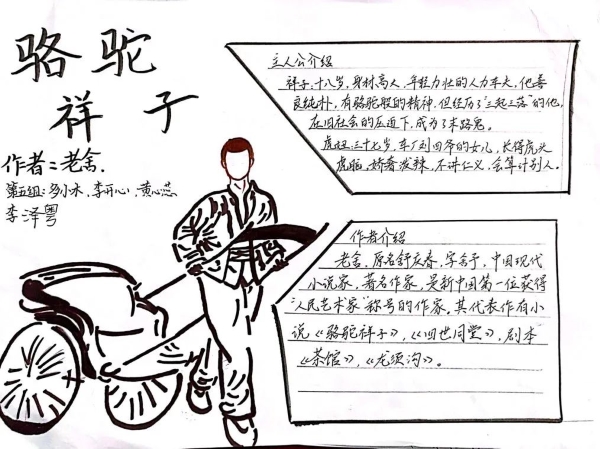 骆驼
祥子
作者:老舍.
第五组:李开心,黄心蕊
李泽粤
主人公介绍
祥子,十八岁,身材高大,年轻力壮的人力车夫,他善
良纯朴,有骆驼般的精神,但经历了"三起三落"的他,
在旧社会的压迫下,成为了末路鬼。
虎妞:三十七岁,车厂刘四爷的女儿,长得虎头
虎脑,娇奢泼辣,不讲仁义,会算计别人.
作者介绍
老舍,原名舒庆春,字舍予,中国现代
小说家,著名作家,是新中国第一位获得
"人民艺术家"称号的作家,其代表作有小
说《骆驼祥子》,《四世同堂》,剧本
《茶馆》,《龙须沟》。